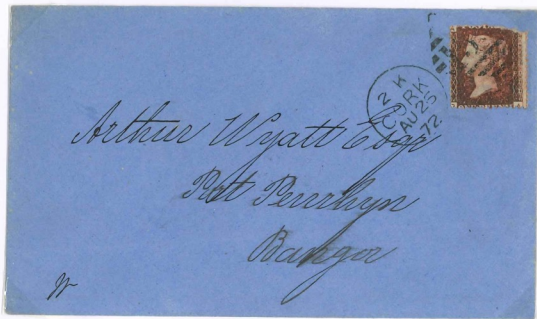 2 K
CORK
AU 26
72
Arthur Wyatt Esqr
Port Penrhyn
Bangor
W